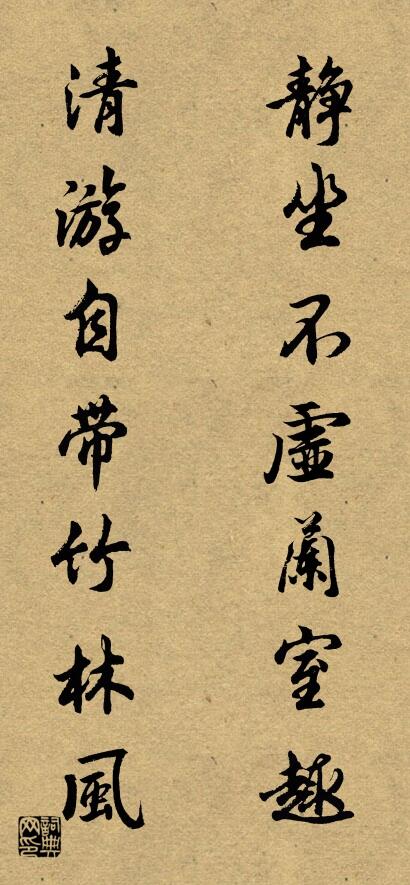 静坐不虚蘭室趣
清游自带竹林風
詞典网印